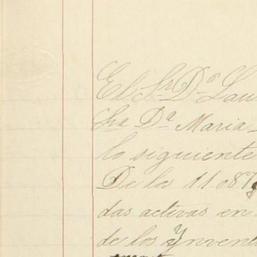 El Sr. Dn. Lau
Sra. Da. Maria
lo siguiente
De la 11.087
das activas en
de los Ynvent